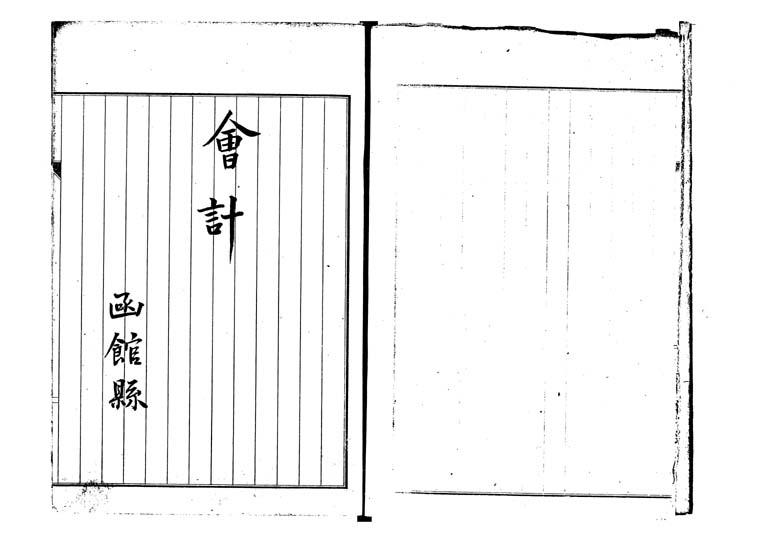 會計
函館縣